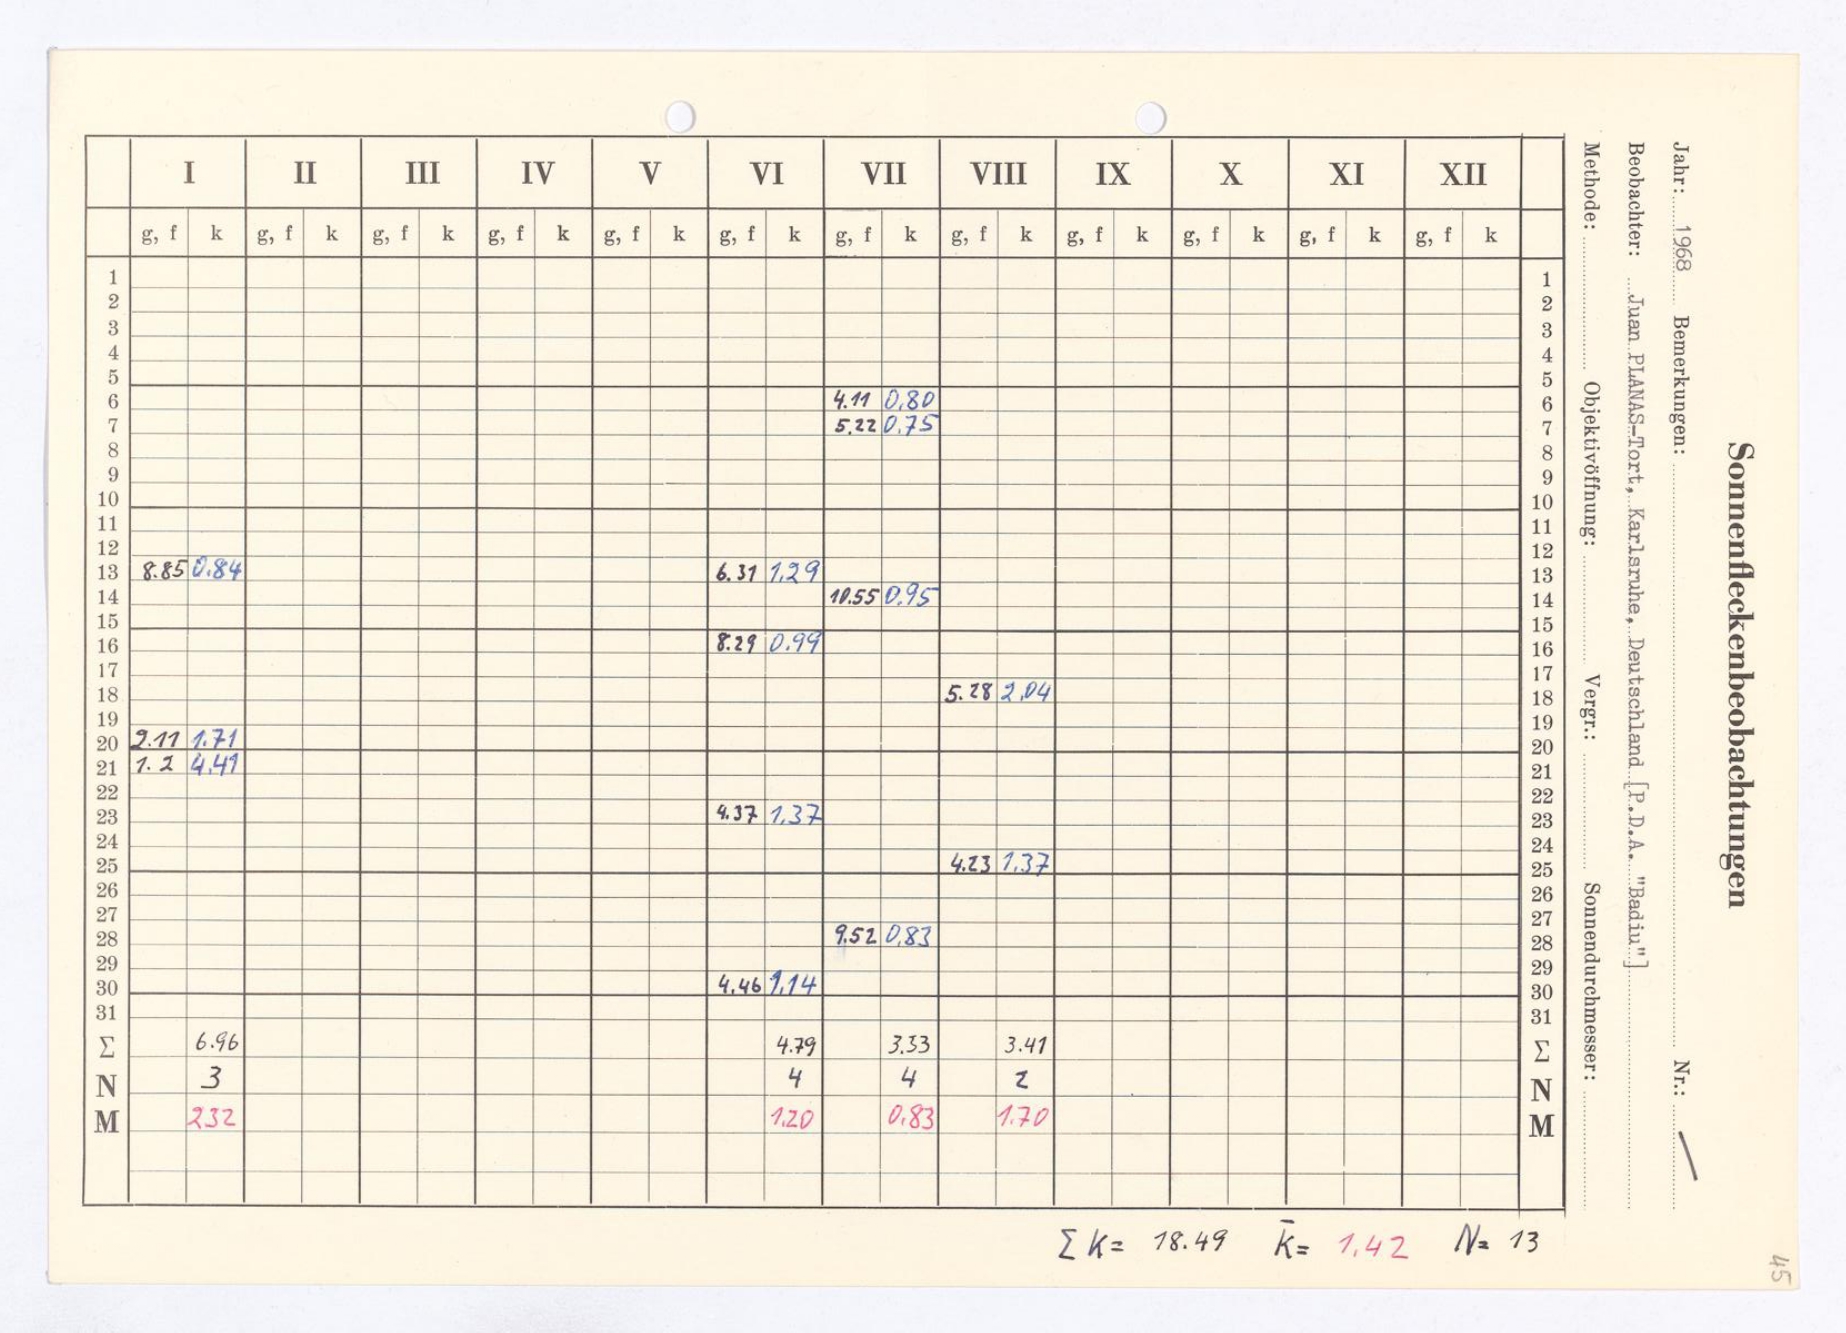 Sonnenfleckenbeobachtungen
Jahr: 1968 Bemerkungen: Nr.: /
Beobachter: Juan PLANAS-Tort, Karlsruhe, Deutschland [P.D.A. "Badiu"]
Methode: Objektivöffnung: Vergr.: Sonnendurchmesser:
I II III IV V VI VII VIII IX X XI XII
g, f k g, f k g, f k g, f k g, f k g, f k g, f k g, f k g, f k g, f k g, f k g, f k
1 1
2 2
3 3
4 4
5 5
6 4.11 0,80 6
7 5,22 0,75 7
8 8
9 9
10 10
11 11
12 12
13 8.85 0.84 6.31 1,29 13
14 10.55 0,95 14
15 15
16 8.29 0.99 16
17 17
18 5.28 2,04 18
19 19
20 2.11 1.71 20
21 1.2 4,41 21
22 22
23 4.37 1,37 23
24 24
25 4.23 1,37 25
26 26
27 27
28 9.52 0,83 28
29 29
30 4.46 1,14 30
31 31
Σ 6.96 4.79 3.33 3.41 Σ
N 3 4 4 2 N
M 2.32 1.20 0.83 1.70 M
Σ k = 18.49 k̄ = 1,42 N = 13
45